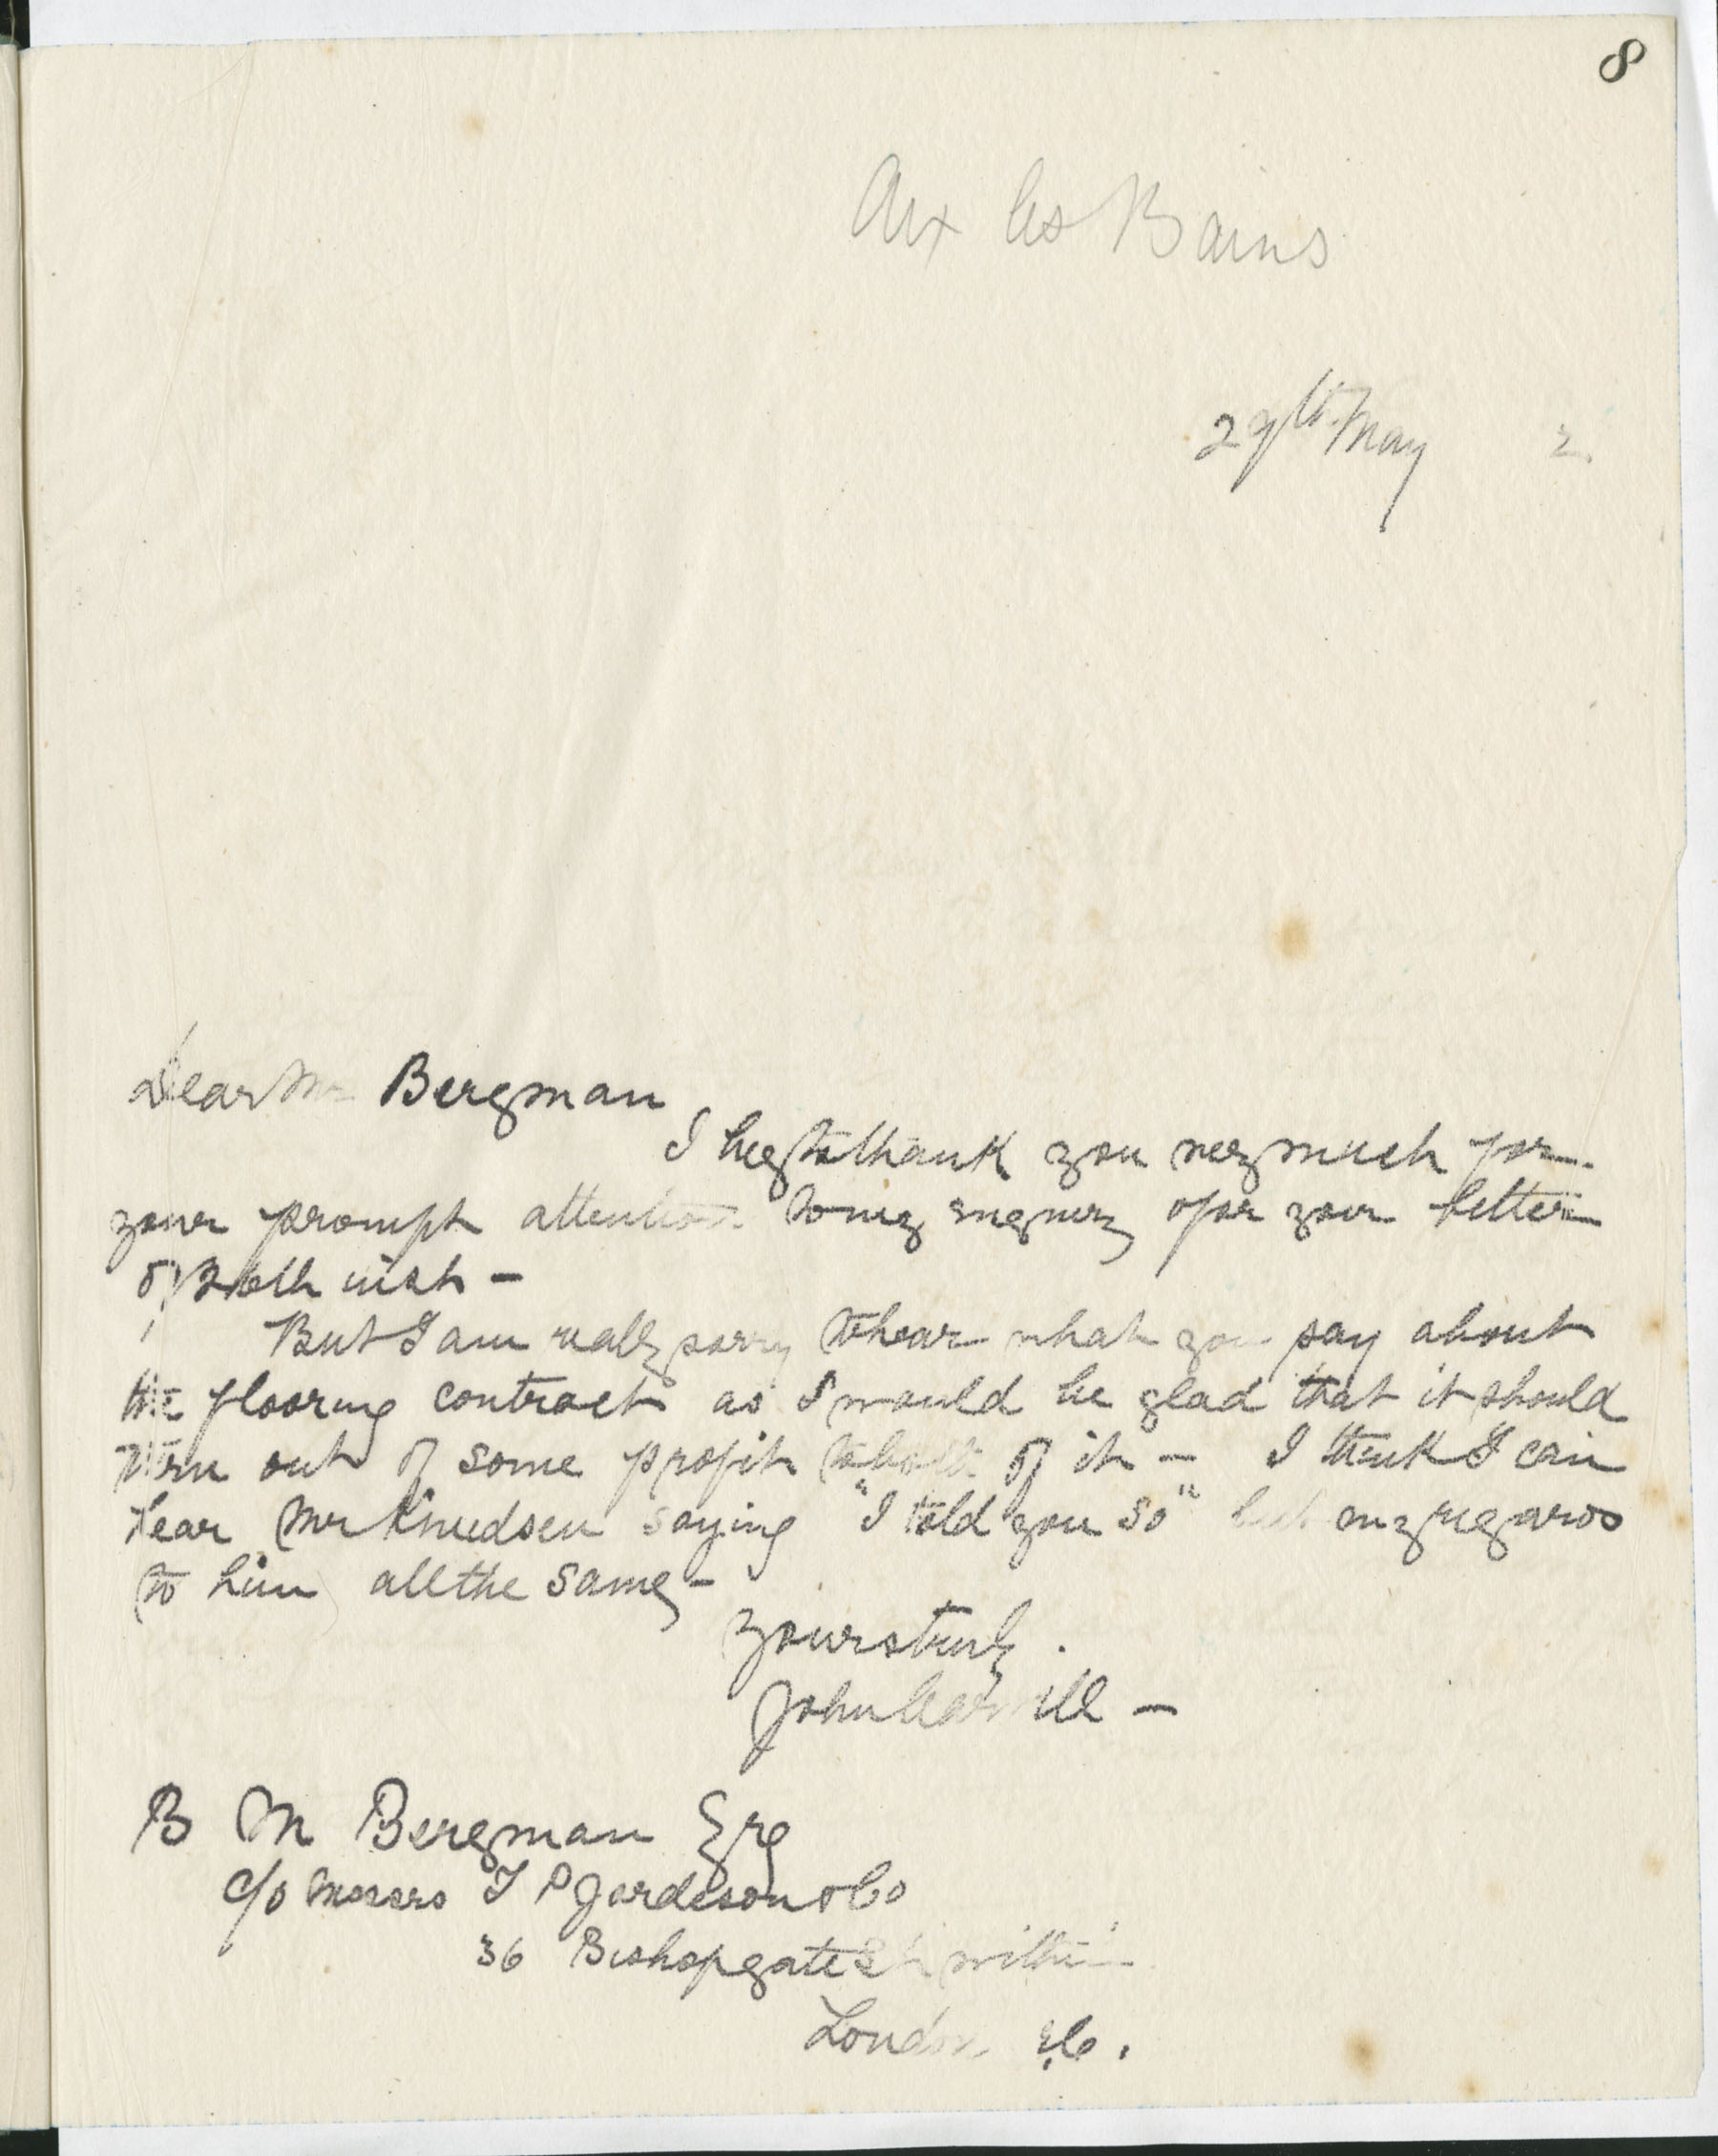 8
Aix les Bains
29th May 2.
Dear Mr Bergman
I beg to thank you very much for
your prompt attention to my enquiry & for your letter
of 26th inst -
But I am really sorry to hear what you say about
the flooring contract as I would be glad that it should
turn out of some profit to both of it - I think I can
hear Mr Knudsen saying "I told you so" but my regards
to him all the same -
Yours truly.
John Carvill -
B M Bergman Esq
c/o Messrs T P Jordeson & Co
36 Bishopgate St within
London E.C.